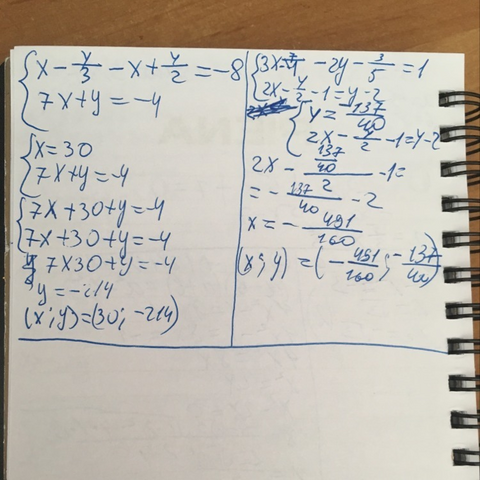 x - y/3 - x + y/2 = -8
7x + y = -4
x = 30
7x + y = -4
7x + 30 + y = -4
7x + 30 + y = -4
7x30 + y = -4
(x; y) = (30; -214)
- 2y - 3/5 = 1
2x - y/2 - 1 = y - 2
2x - y/2 - 1 = y - 2
2x - 137/40 / 2 - 1 =
= - 137/40 - 2
x = - 491/160
(x; y) = (- 491/160; - 137/40)